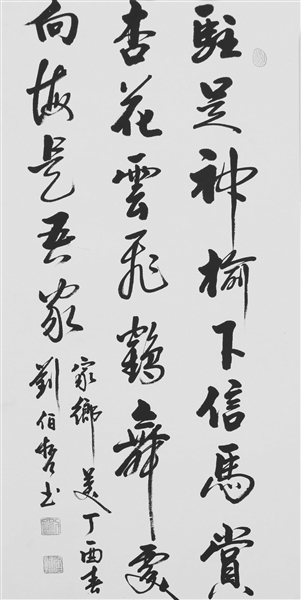 駐足神榆下信馬賞
杏花雲飛鶴舞處
向海是吾家
家鄉美丁酉春
劉伯哲书